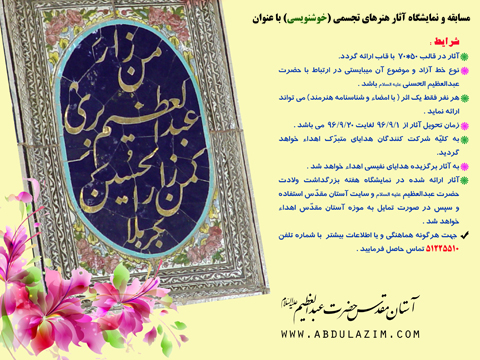 مسابقه و نمایشگاه آثار هنرهای تجسمی (خوشنویسی) با عنوان
شرایط :
آثار در قالب ۵۰*۷۰ با قاب ارائه گردد.
نوع خط آزاد و موضوع آن میبایستی در ارتباط با حضرت
عبدالعظیم الحسنی علیه السلام باشد .
هر نفر فقط یک اثر ( با امضاء و شناسنامه هنرمند) می تواند
ارائه نماید .
زمان تحویل آثار از ۹۶/۹/۱ لغایت ۹۶/۹/۲۰ می باشد .
به کلیّه شرکت کنندگان هدایای متبرّک اهداء خواهد
گردید.
به آثار برگزیده هدایای نفیسی اهداء خواهد شد .
آثار ارائه شده در نمایشگاه هفته بزرگداشت ولادت
حضرت عبدالعظیم علیه السلام و سایت آستان مقدّس استفاده
و سپس در صورت تمایل به موزه آستان مقدّس اهداء
خواهد شد .
جهت هرگونه هماهنگی و یا اطلاعات بیشتر با شماره تلفن
۵۱۲۲۵۵۱۰ تماس حاصل فرمایید .
من زار
عبدالعظیم بری
کمن زار الحسین
بکربلا
آستان مقدس حضرت عبدالعظیم علیه السلام
WWW.ABDULAZIM.COM